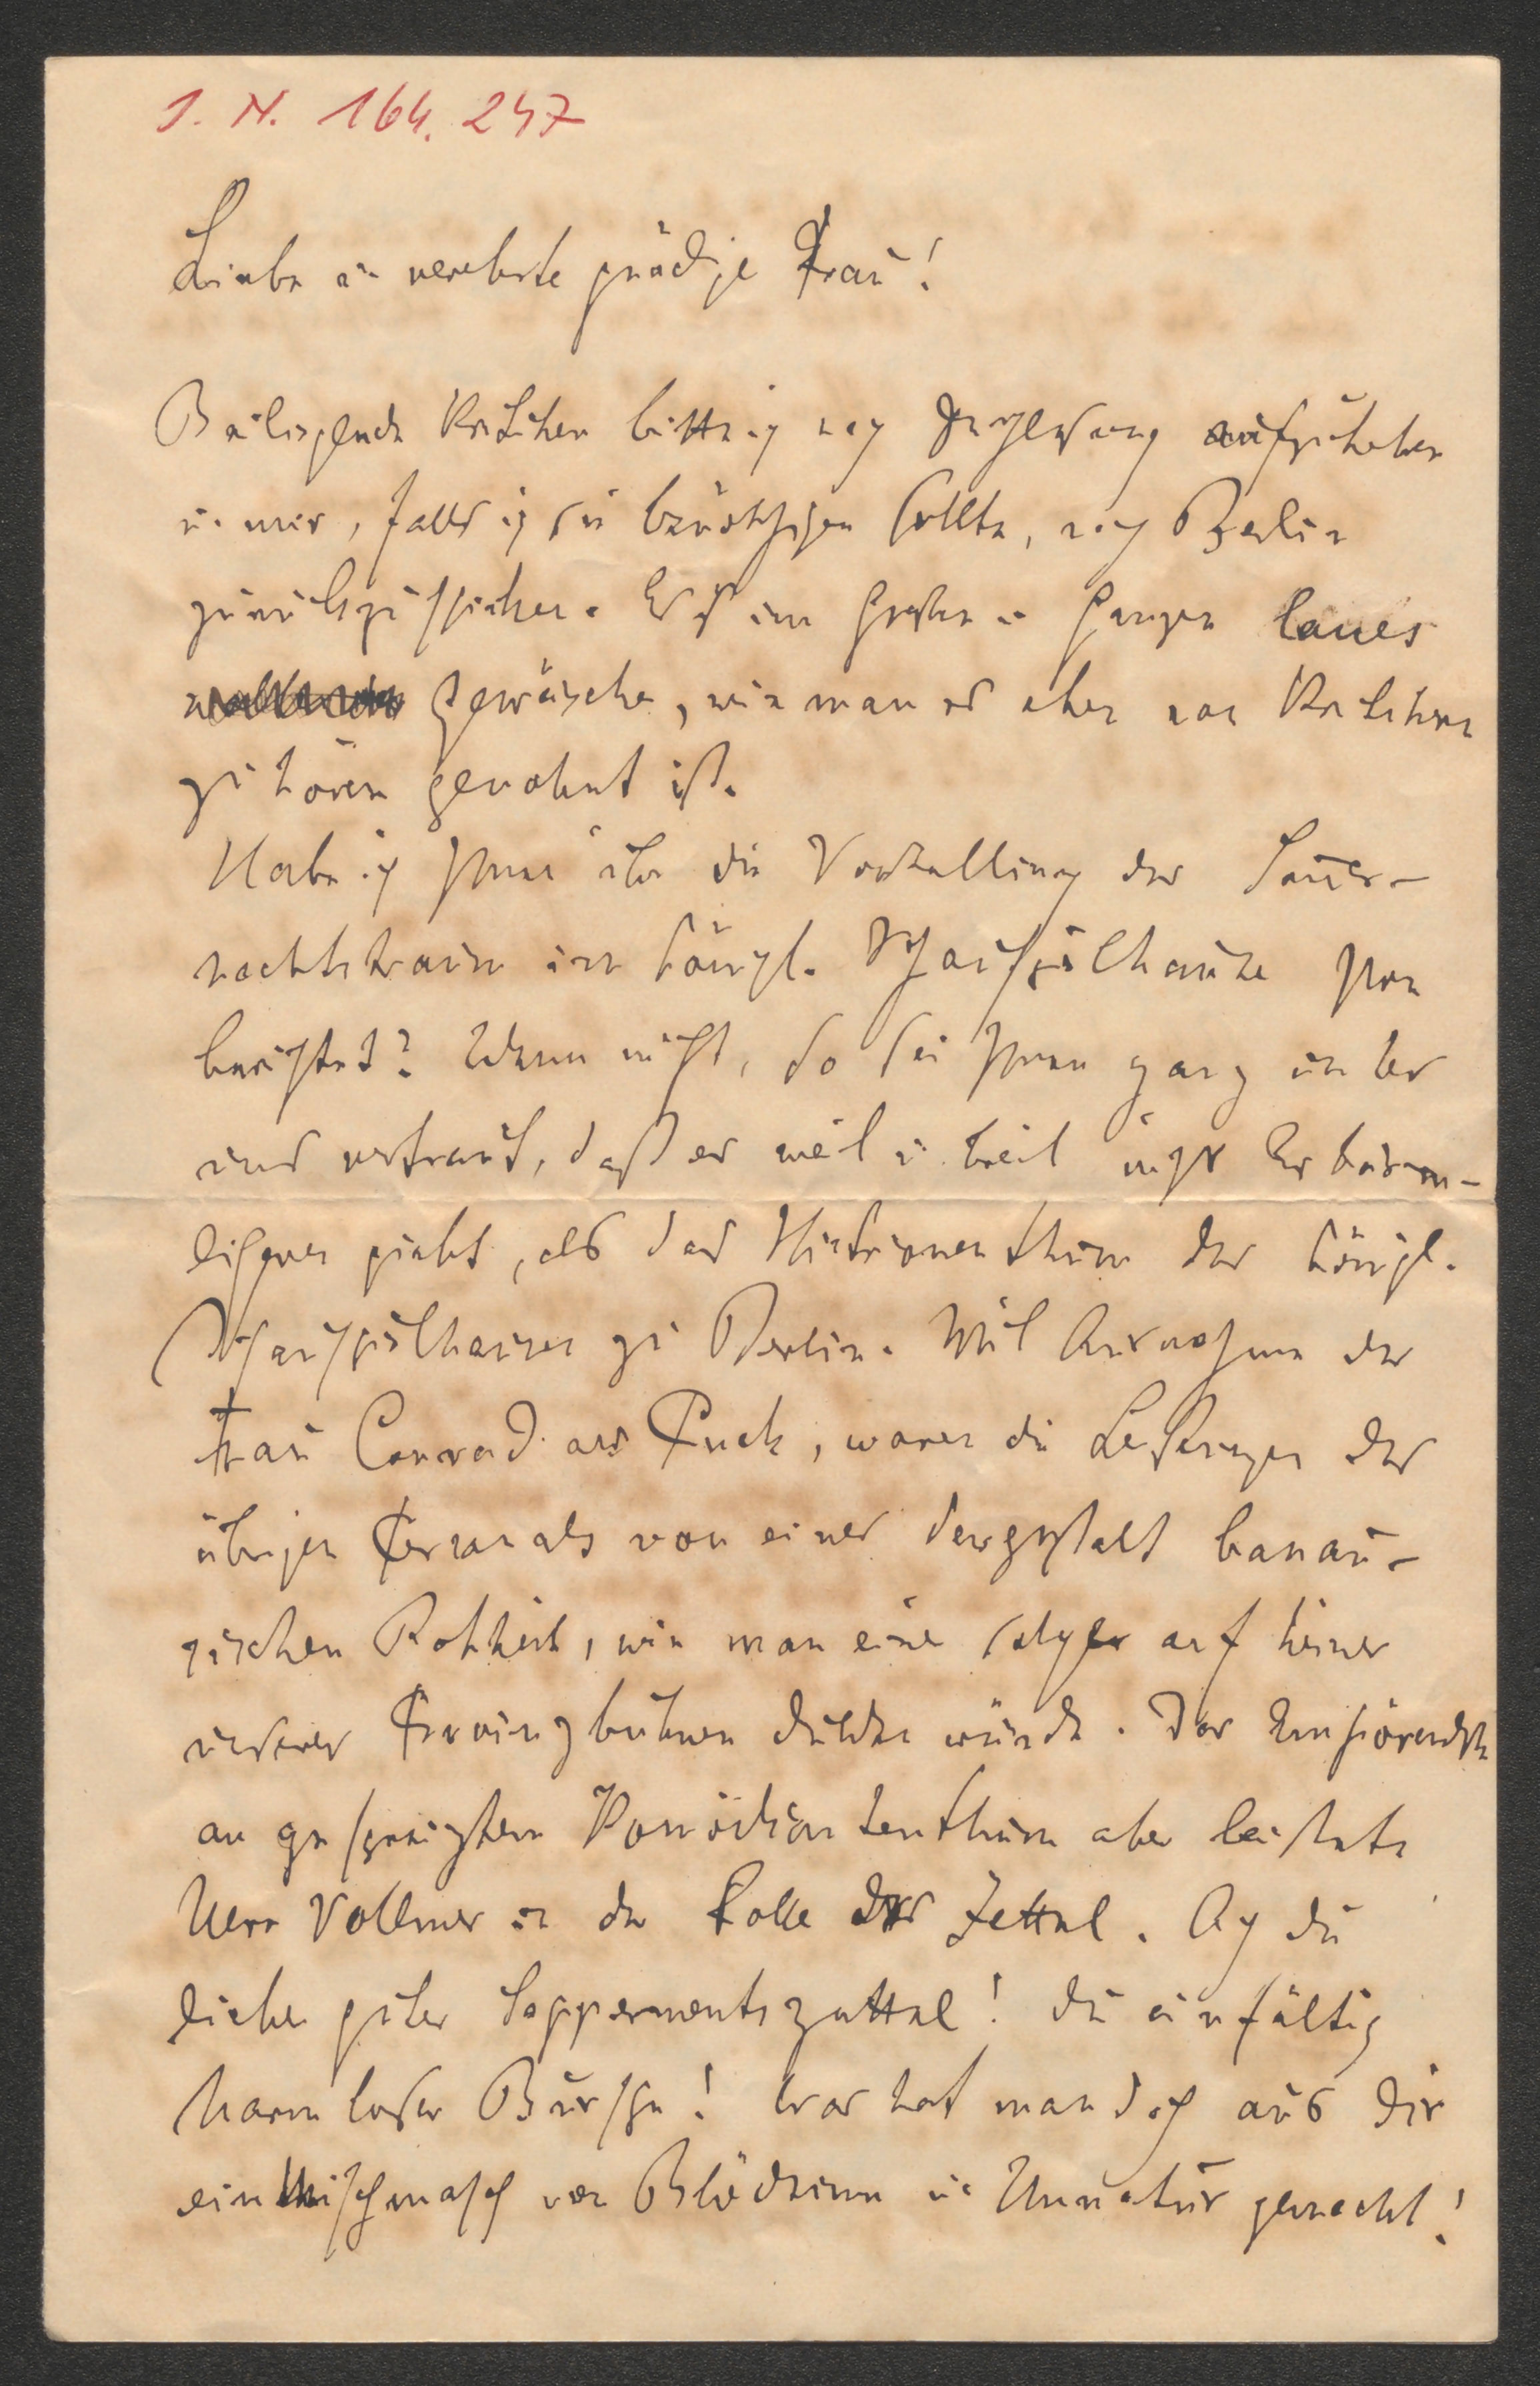 J. N. 164.247
Liebe u. verehrte gnädige Frau!
Beiliegende Kritiken bitte ich nach Durchlesung aufzuheben
u. mir, falls ich sie benöthigen sollte, nach Berlin
zurückzuschicken. Es ist im Großen u. Ganzen laues
Gewäsche, wie man es eben von Kritikern
zu hören gewohnt ist.
Habe ich Ihnen über die Vorstellung des Somer-
nachtstraum im königl. Schauspielhause schon
berichtet? Wenn nicht, so sei Ihnen ganz unter
uns vertraut, daß es weit u. breit nichts Erbärm-
licheres giebt, als das Histrionenthum des königl.
Schauspielhauses zu Berlin. Mit Ausnahme der
Frau Conrad als Puck, waren die Leistungen des
übrigen Personals von einer dergestalt banau-
sischen Rohheit, wie man eine solche auf keiner
unserer Provinzbühnen dulden würde. Das Empörendste
an gespreiztem Komödiantenthum aber leistete
Herr Vollmer in der Rolle des Zettel. Ach du
lieber guter Sappermentszettel! du einfältig
harmloser Bursche! Was hat man doch aus dir
ein Mischmasch von Blödsinn u. Unnatur gemacht!